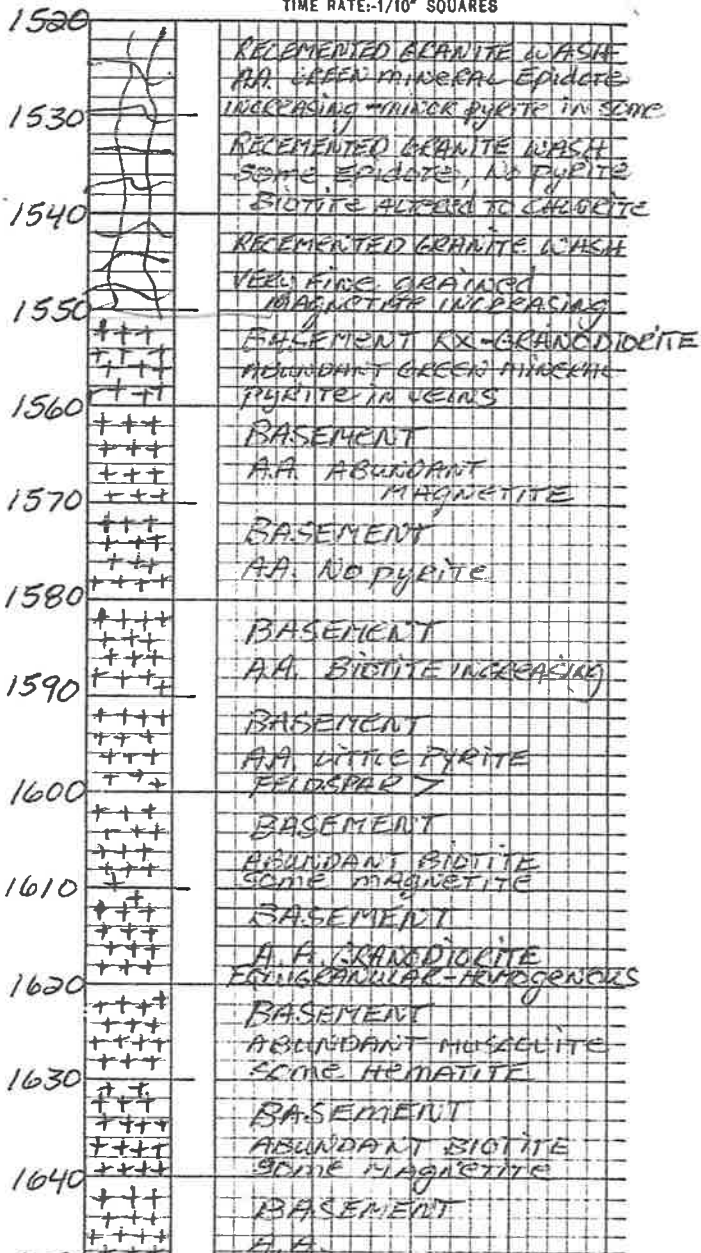 TIME RATE:-1/10" SQUARES
1520
RECEMENTED GRANITE WASH
AA. GREEN MINERAL EPIDOTE
1530
INCREASING-MINOR PYRITE IN SOME
RECEMENTED GRANITE WASH
SOME EPIDOTE, NO PYRITE
1540
BIOTITE ALTERED TO CHLORITE
RECEMENTED GRANITE WASH
VERY FINE GRAINED
1550
MAGNETITE INCREASING
BASEMENT RX-GRANODIORITE
ABUNDANT GREEN MINERAL
1560
PYRITE IN VEINS
BASEMENT
A.A. ABUNDANT
1570
MAGNETITE
BASEMENT
A.A. NO PYRITE
1580
BASEMENT
A.A. BIOTITE INCREASING
1590
BASEMENT
A.A. LITTLE PYRITE
1600
FELDSPAR >
BASEMENT
ABUNDANT BIOTITE
1610
SOME MAGNETITE
BASEMENT
A.A. GRANODIORITE
1620
EQUIGRANULAR-HOMOGENOUS
BASEMENT
ABUNDANT MUSCOVITE
1630
SOME HEMATITE
BASEMENT
ABUNDANT BIOTITE
1640
SOME MAGNETITE
BASEMENT
A.A.